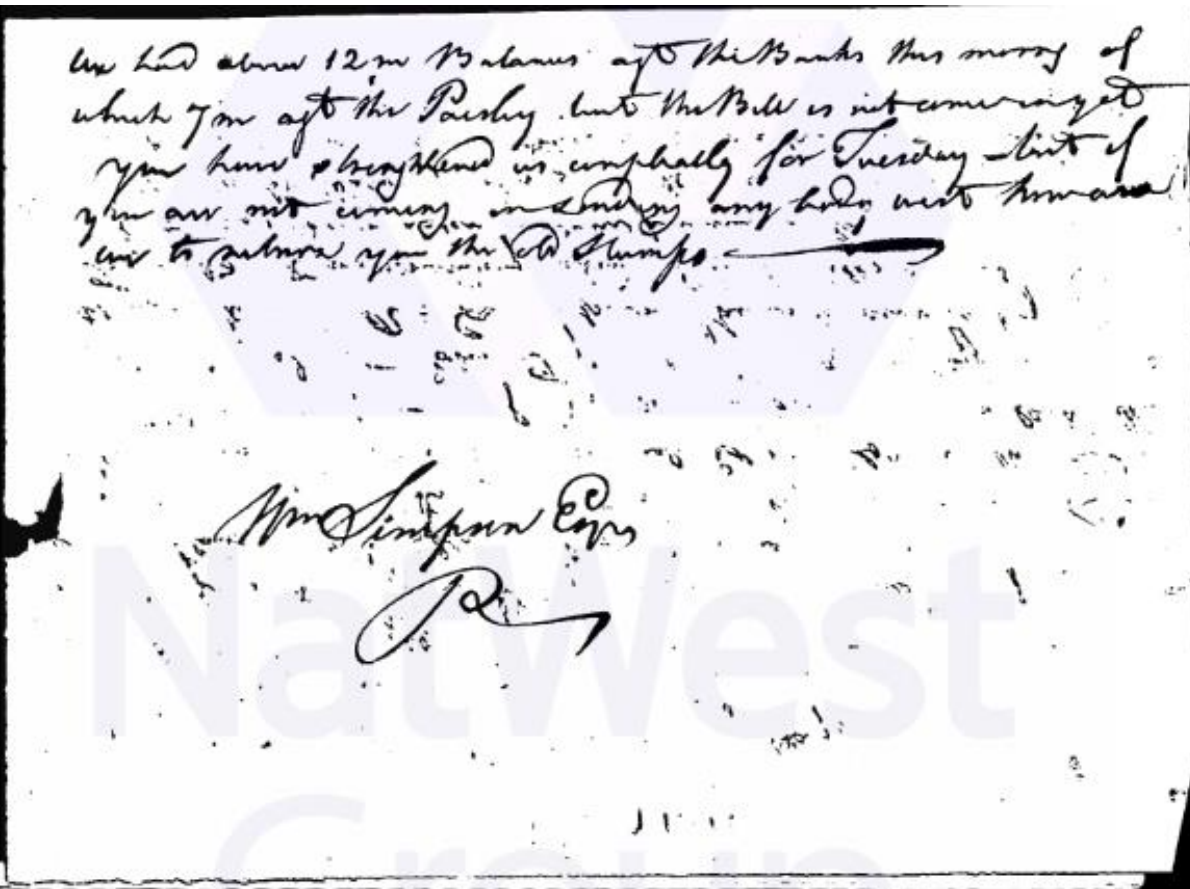 We had about 12 m Balances agt the Banks this morng of
which 7 m agt the Paisley but the Bill is not come in yet
you have strengthened us compleatly for Tuesday - but if
you are not coming or sending any body west how are
we to return you the old Stamps
Wm Simpson Esqr
R
NatWest
Group